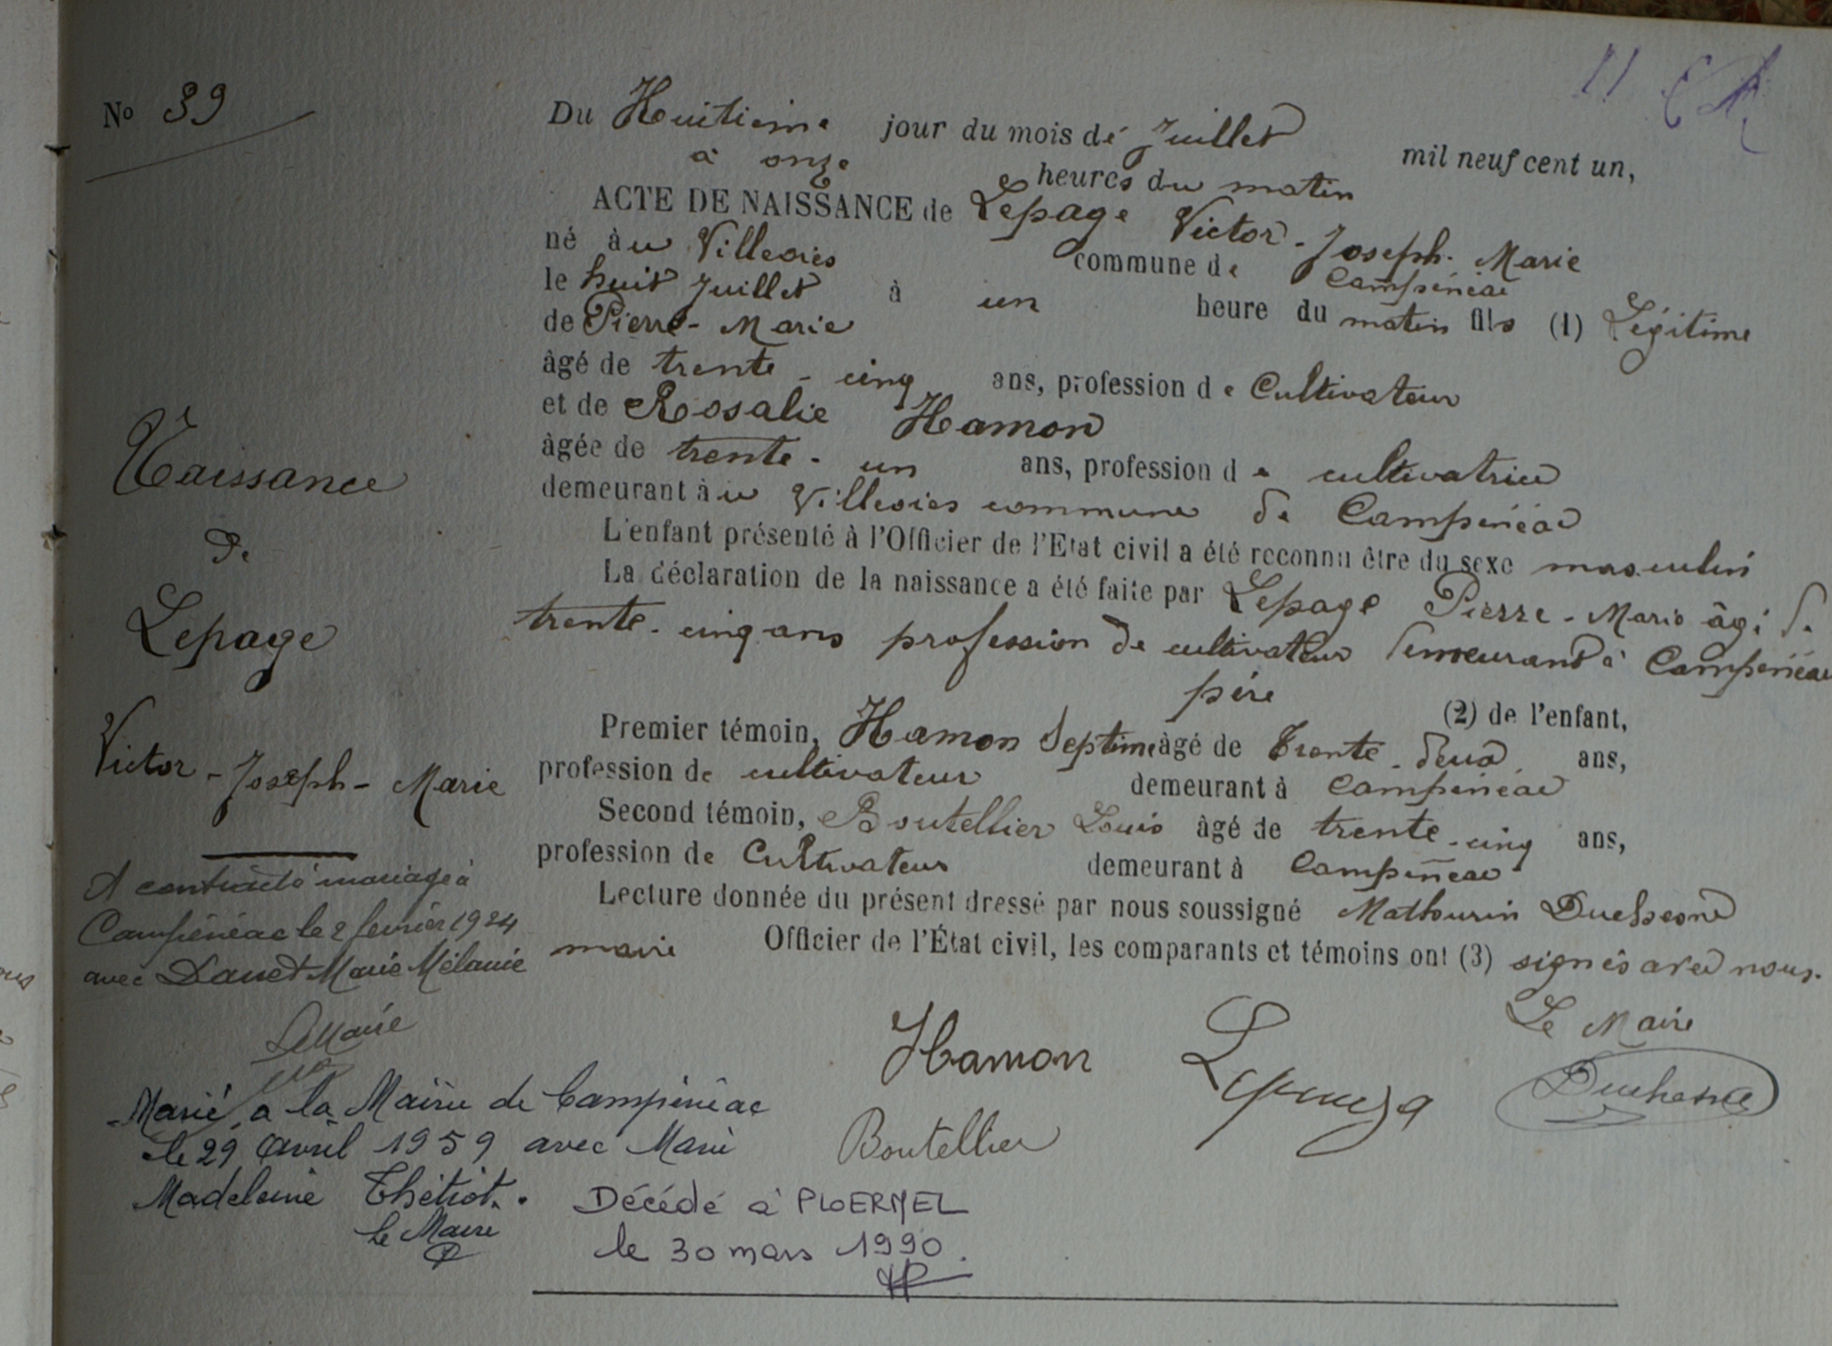 No 39
Du Huitième jour du mois de Juillet mil neuf cent un,
à onze heures du matin
ACTE DE NAISSANCE de Lepage Victor-Joseph-Marie
né à commune de Campénéac
le huit Juillet à un heure du matin fils (1) Légitime
de Pierre-Marie
âgé de trente-cinq ans, profession de Cultivateur
et de Rosalie Hamon
âgée de trente-un ans, profession de cultivatrice
demeurant à commune de Campénéac
L'enfant présenté à l'Officier de l'Etat civil a été reconnu être du sexe masculin
La déclaration de la naissance a été faite par Lepage Pierre-Marie âgé de
trente-cinq ans profession de cultivateur demeurant à Campénéac
père (2) de l'enfant,
Premier témoin, Hamon Septime âgé de trente-deux ans,
profession de cultivateur demeurant à Campénéac
Second témoin, Boutellier Louis âgé de trente-cinq ans,
profession de Cultivateur demeurant à Campénéac
Lecture donnée du présent dressé par nous soussigné Mathurin Duchesne
maire Officier de l'État civil, les comparants et témoins ont (3) signés avec nous.
Le Maire
Hamon Lepage Duchesne
Boutellier
Naissance
de
Lepage
Victor-Joseph-Marie
A contracté mariage à
Campénéac le 2 février 1924
avec Danet Marie Mélanie
Le Maire
Marié à la Mairie de Campénéac
le 29 Avril 1959 avec Marie
Madeleine Thétiot.
le Maire
Décédé à PLOERMEL
le 30 mars 1990.